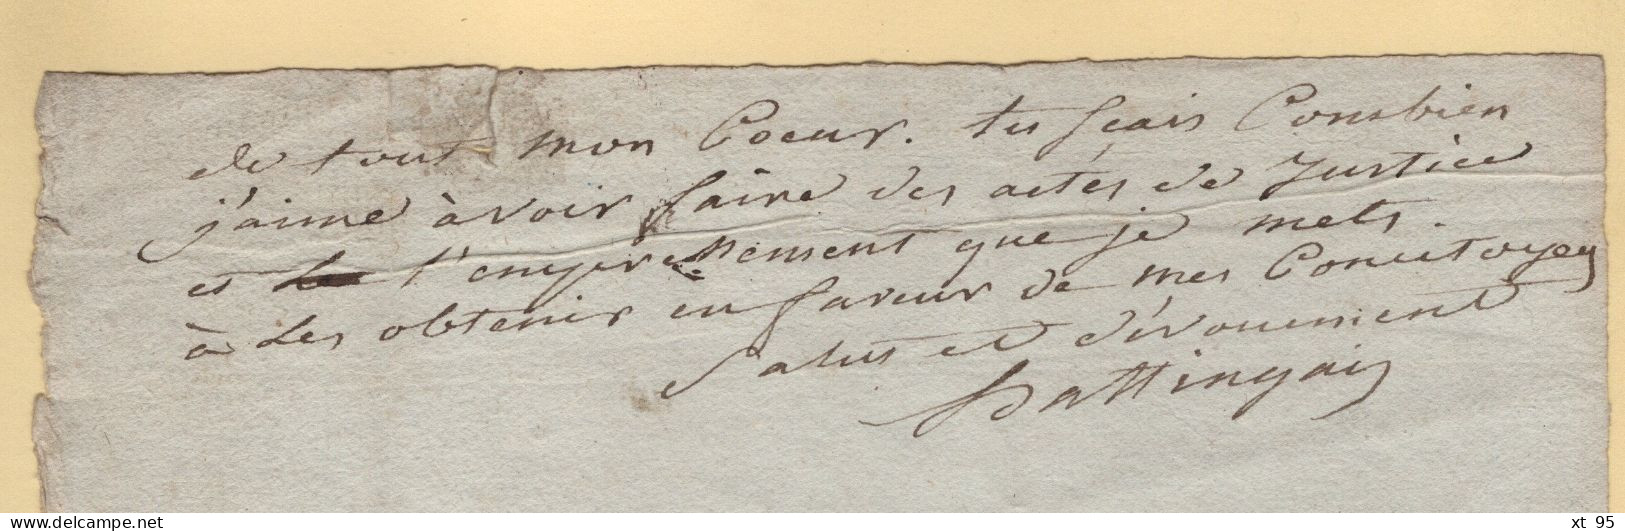 de tout mon Coeur. tu sçais Combien
j'aime à voir faire des actes de Justice
et l'empressement que je mets.
à les obtenir en faveur de mes Concitoyens
Salut et dévouement
www.delcampe.net
xt 95